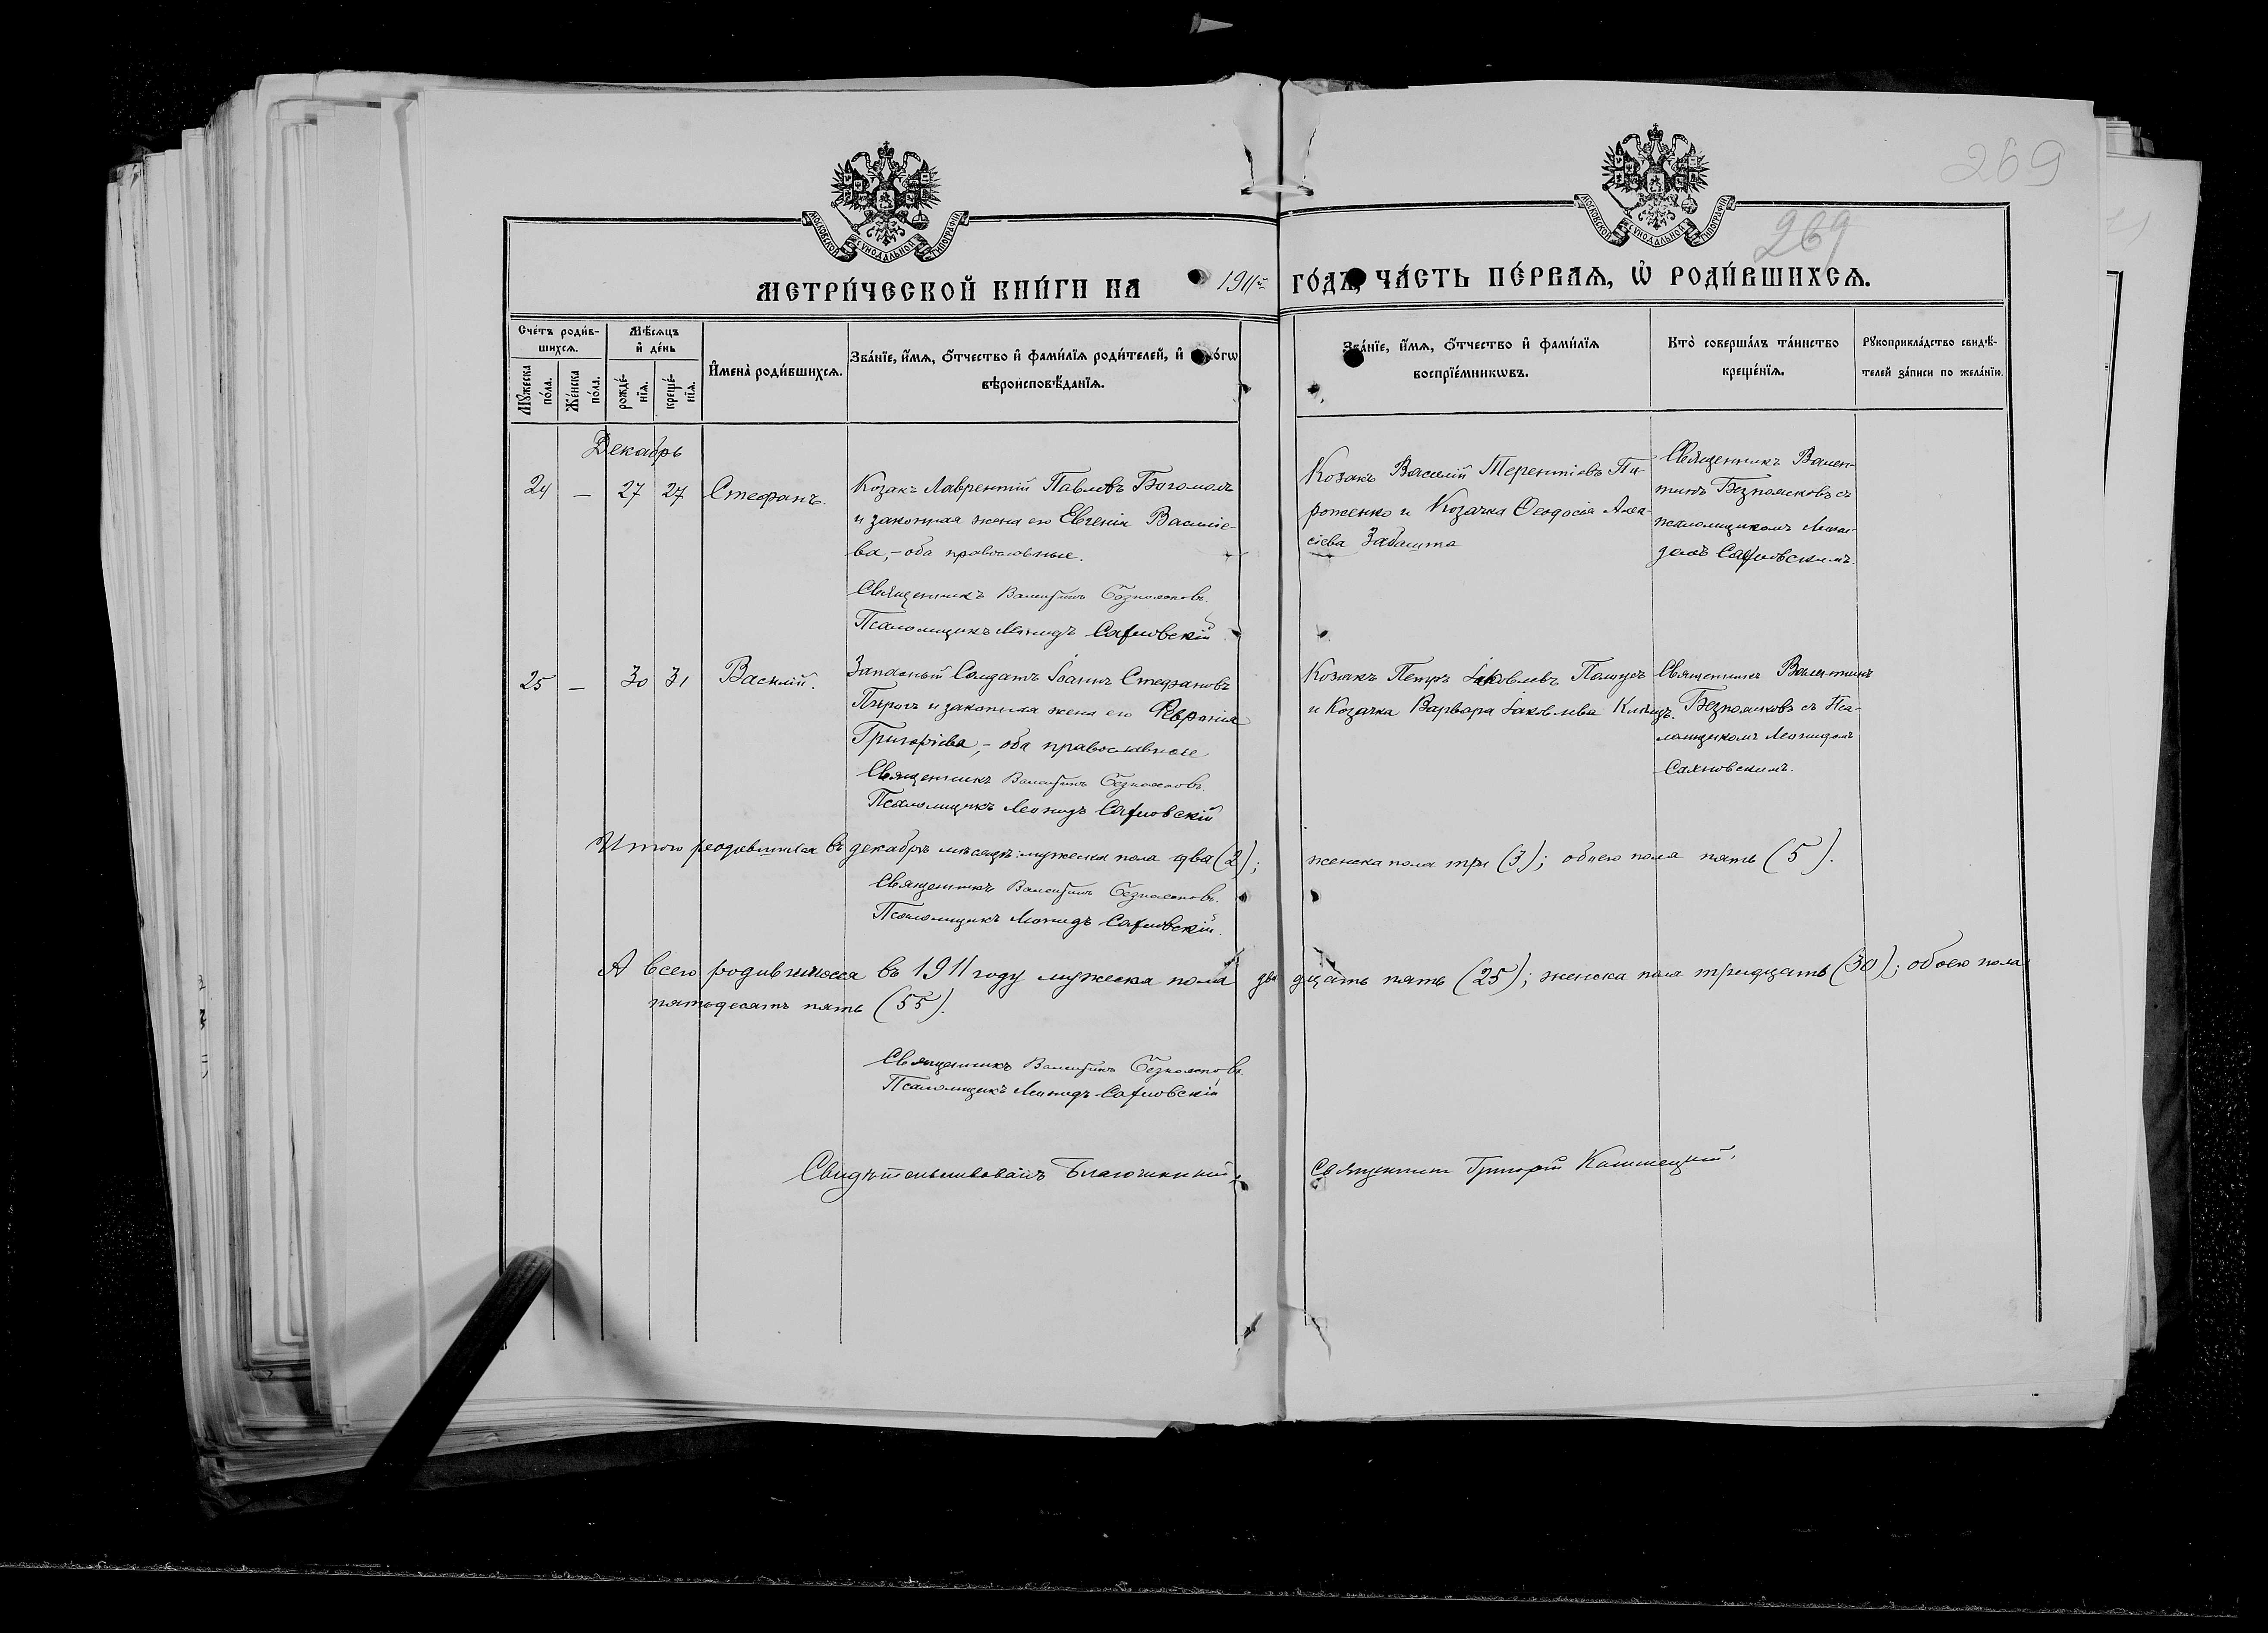 269
269
МОСКОВСКОЙ СѴНОДАЛЬНОЙ ТИПОГРАФІИ
МОСКОВСКОЙ СѴНОДАЛЬНОЙ ТИПОГРАФІИ
МЕТРИ́ЧЕСКОЙ КНИ́ГИ НА 1911й ГО́ДЪ, ЧА́СТЬ ПЕ́РВАЯ, Ѡ҆ РОДИ́ВШИХСЯ.
Сче́тъ роди́вшихся.
Мꙋ́жеска по́ла.
Же́нска по́ла.
Мѣ́сяцъ и҆ де́нь
рожде́нїя.
креще́нїя.
И҆мена̀ роди́вшихся.
Зва́нїе, и҆́мя, ѻ҆́тчество и҆ фами́лїя роди́телей, и҆
вѣроисповѣ́данїя.
Зва́нїе, и҆́мя, ѻ҆́тчество и҆ фами́лїя
воспрїе́мникѡвъ.
Кто̀ соверша́лъ та́инство
креще́нїя.
Рꙋкоприкла́дство свидѣ́-
телей за́писи по жела́нїю.
Декабрь
24 — 27 27 Стефанъ.
Козакъ Лаврентій Павловъ Богомолъ
и законная жена его Евгенія Василіе-
ва, – оба православные.
Священникъ Валентинъ Безпоясковъ.
Псаломщикъ Леонидъ Сахновскій.
Козакъ Василій Терентіевъ Пи-
роженко и Козачка Ѳеодосія
Забашта
Священникъ Вален-
тинъ Безпоясковъ съ
псаломщикомъ Леони-
домъ Сахновскимъ.
25 — 30 31 Василій.
Запасный Солдатъ Іоаннъ Стефановъ
Пирогъ и законная жена его Февронія
Григоріева, – оба православные
Священникъ Валентинъ Безпоясковъ.
Псаломщикъ Леонидъ Сахновскій
Козакъ Петръ Іаковлевъ
и Козачка Варвара Іаковлева
Священникъ Валентинъ
Безпоясковъ съ Пса-
ломщикомъ Леонидомъ
Сахновскимъ.
Итого родившихся въ декабрѣ мѣсяцѣ: мужеска пола два (2); женска пола три (3); обоего пола пять (5).
Священникъ Валентинъ Безпоясковъ.
Псаломщикъ Леонидъ Сахновскій.
А всего родившихся въ 1911 году мужеска пола двадцать пять (25); женска пола тридцать (30); обоего пола
пятьдесятъ пять (55).
Священникъ Валентинъ Безпоясковъ.
Псаломщикъ Леонидъ Сахновскій
Свидѣтельствовалъ Благочинный, Священникъ Григорій